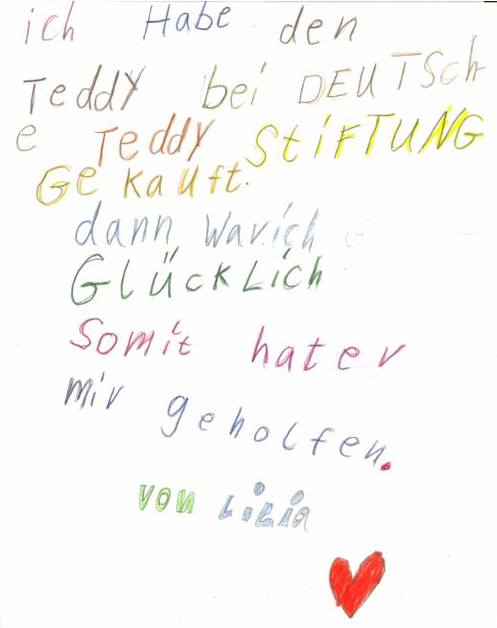 ich Habe den
Teddy bei DEUTSch
e Teddy StiFTUNG
Gekauft.
dann war ich
GlückLich
Somit hat er
mir geholfen.
von LiLia